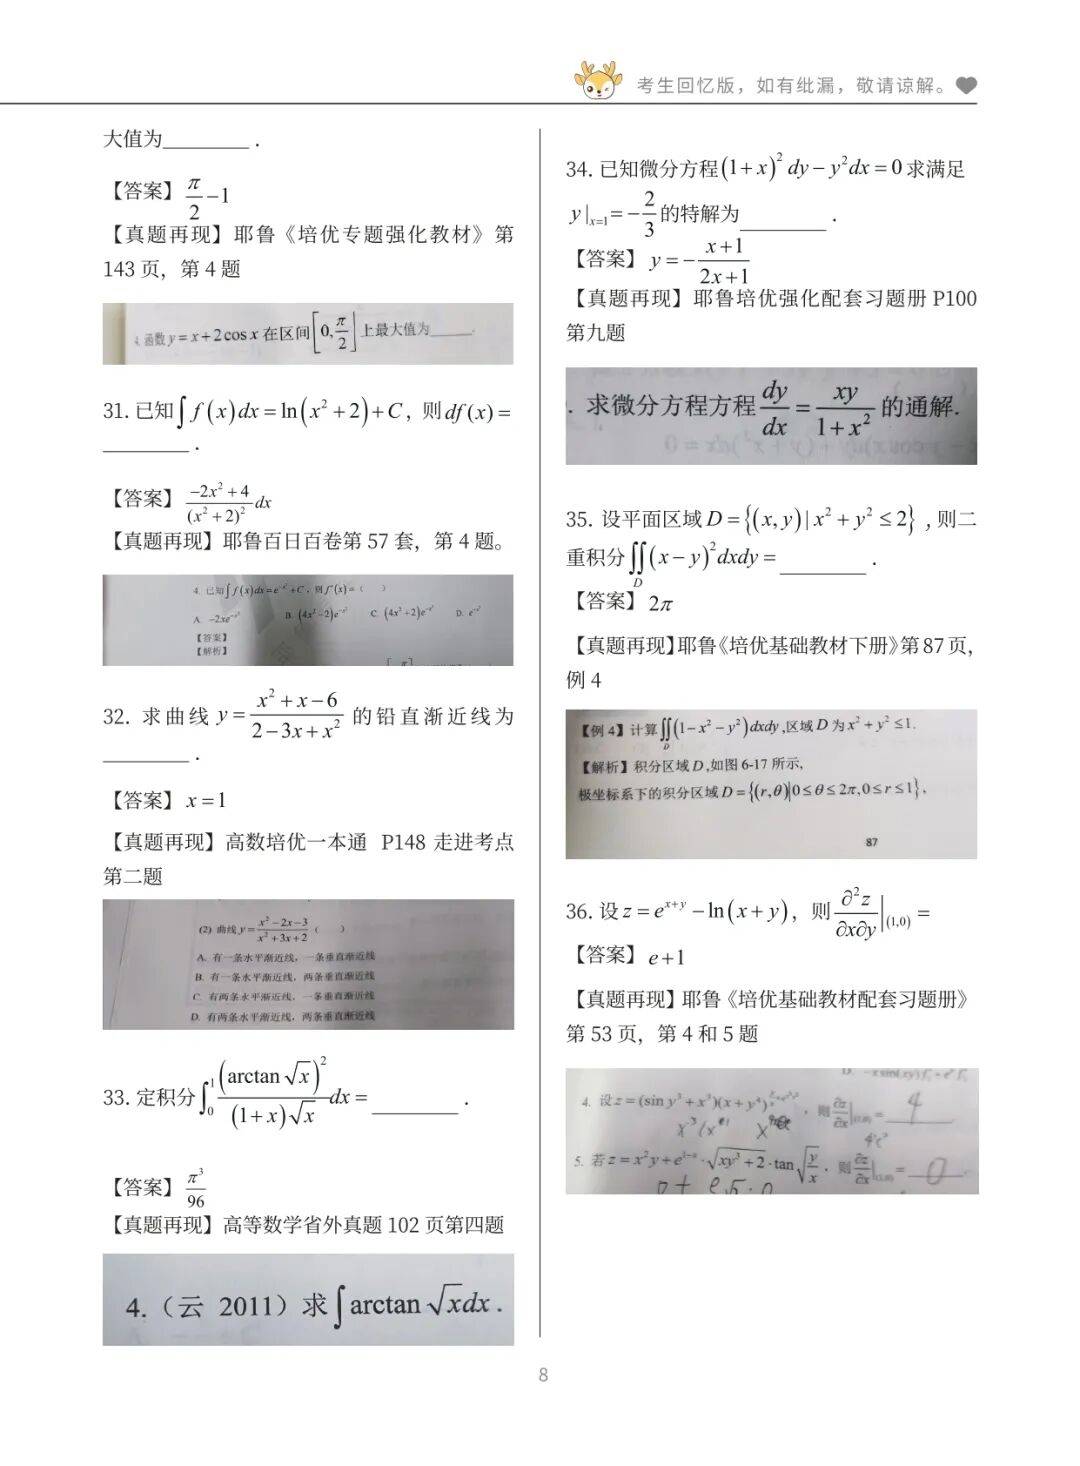 考生回忆版，如有纰漏，敬请谅解。
大值为________.
【答案】π/2−1
【真题再现】耶鲁《培优专题强化教材》第
143 页，第 4 题
函数 y = x+2cos x 在区间[0, π/2]上最大值为______.
31. 已知∫f(x)dx = ln(x²+2)+C，则df(x) =
________.
【答案】(−2x²+4)/(x²+2)² dx
【真题再现】耶鲁百日百卷第 57 套，第 4 题。
4. 已知∫f(x)dx = e^(−x²)+C，则f'(x) = ( )
A. −2xe^(−x²) B. (4x²−2)e^(−x²) C. (4x²+2)e^(−x²) D. e^(−x²)
【答案】
【解析】
32. 求曲线 y = (x²+x−6)/(2−3x+x²) 的铅直渐近线为
________.
【答案】x = 1
【真题再现】高数培优一本通 P148 走进考点
第二题
(2) 曲线 y = (x²−2x−3)/(x²+3x+2) ( )
A. 有一条水平渐近线，一条垂直渐近线
B. 有一条水平渐近线，两条垂直渐近线
C. 有两条水平渐近线，一条垂直渐近线
D. 有两条水平渐近线，两条垂直渐近线
33. 定积分∫₀¹ (arctan √x)²/((1+x)√x) dx = ________.
【答案】π³/96
【真题再现】高等数学省外真题 102 页第四题
4.（云 2011）求∫arctan √x dx.
34. 已知微分方程(1+x)² dy − y²dx = 0 求满足
y|ₓ₌₁ = −2/3 的特解为________.
【答案】y = −(x+1)/(2x+1)
【真题再现】耶鲁培优强化配套习题册 P100
第九题
. 求微分方程方程 dy/dx = xy/(1+x²) 的通解.
35. 设平面区域 D = {(x, y) | x² + y² ≤ 2} ,则二
重积分∬_D (x−y)² dxdy = ________.
【答案】2π
【真题再现】耶鲁《培优基础教材下册》第 87 页,
例 4
【例 4】计算∬_D (1−x²−y²)dxdy,区域 D 为 x²+y² ≤1.
【解析】积分区域 D,如图 6-17 所示,
极坐标系下的积分区域 D = {(r,θ)|0≤θ≤2π,0≤r≤1},
87
36. 设 z = e^(x+y) − ln(x+y)，则 ∂²z/∂x∂y |(1,0) =
【答案】e+1
【真题再现】耶鲁《培优基础教材配套习题册》
第 53 页，第 4 和 5 题
4. 设 z = (sin y³+x³)(x+y⁴)，则 ∂z/∂x = 4
5. 若 z = x²y+·√(xy³+2)·tan√(y/x)，则 ∂z/∂x = 0
8